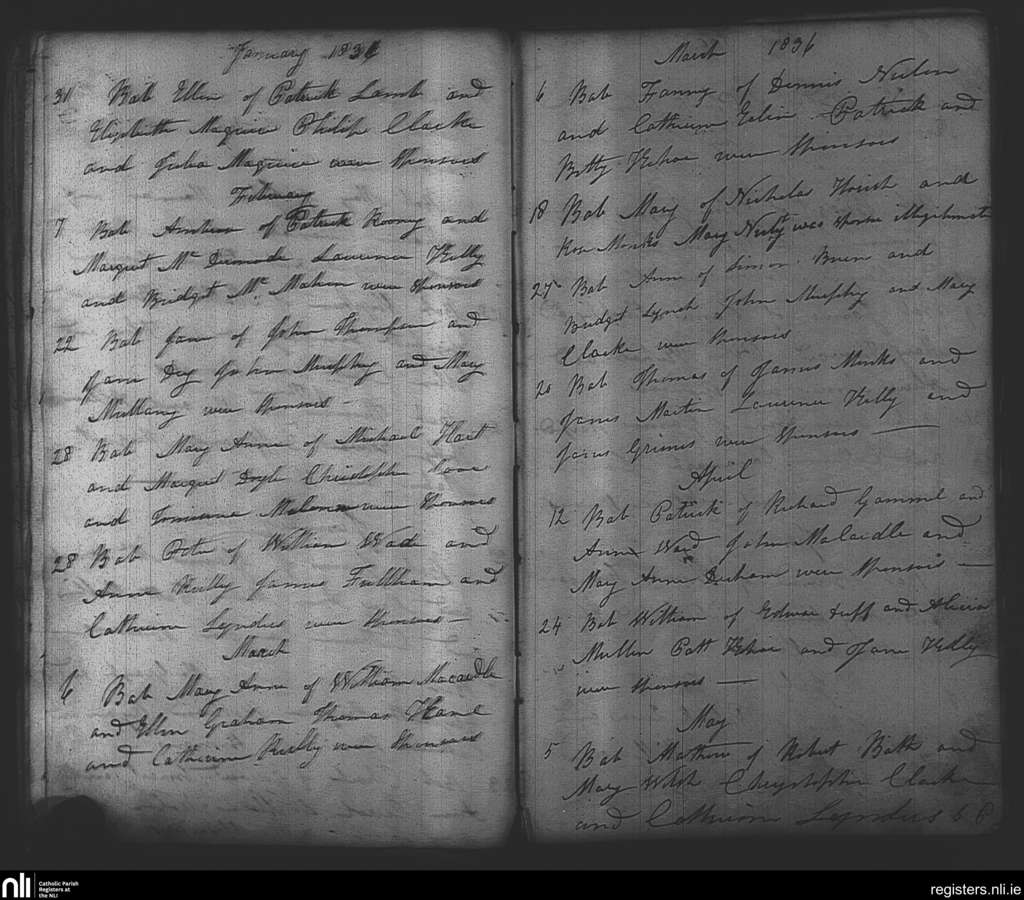 January 1836
31 Bab Ellen of Patrick Lamb and
Elizabeth Maguire Philip Clarke
and Julia Maguire were Sponsors
February
7 Bab Andrew of Patrick Roony and
Margret Mc Dermode Laurence Kelly
and Bridget Mc Mahon were Sponsors
22 Bab Jane of John Thompson and
Jane Day John Murphy and Mary
Mullany were Sponsors —
28 Bab Mary Anne of Michael Hart
and Margret Doyle Christopher
and Malone were Sponsors
28 Bab Peter of William Wade and
Anne Reilly James Fullham and
Catherine Lynders were Sponsors —
March
6 Bab Mary Anne of William Macardle
and Ellen Graham Thomas Kane
and Catherine Reilly were Sponsors
March 1836
6 Bab Fanny of Dennis
and Catherine Patrick and
Betty Kehoe were Sponsors
18 Bab Mary of Nicholas and
Rose Monks Mary was Sponsor illegitimate
27 Bab Ann of Simon and
Bridget Lynch John Murphy and Mary
Clarke were Sponsors
20 Bab Thomas of James Monks and
Martin Laurence Kelly and
Grimes were Sponsors —
April
12 Bab Patrick of Richard Gammel and
Anne Ward John Macardle and
Mary Anne Durham were Sponsors —
24 Bab William of Edward Duff and Alicia
Mullen Patt Kehoe and Jane Kelly
were Sponsors —
May
5 Bab Mathew of Robert and
Mary Welsh Chrystopher Clarke
and Catherine Lynders
nli Catholic Parish
Registers at
the NLI
registers.nli.ie